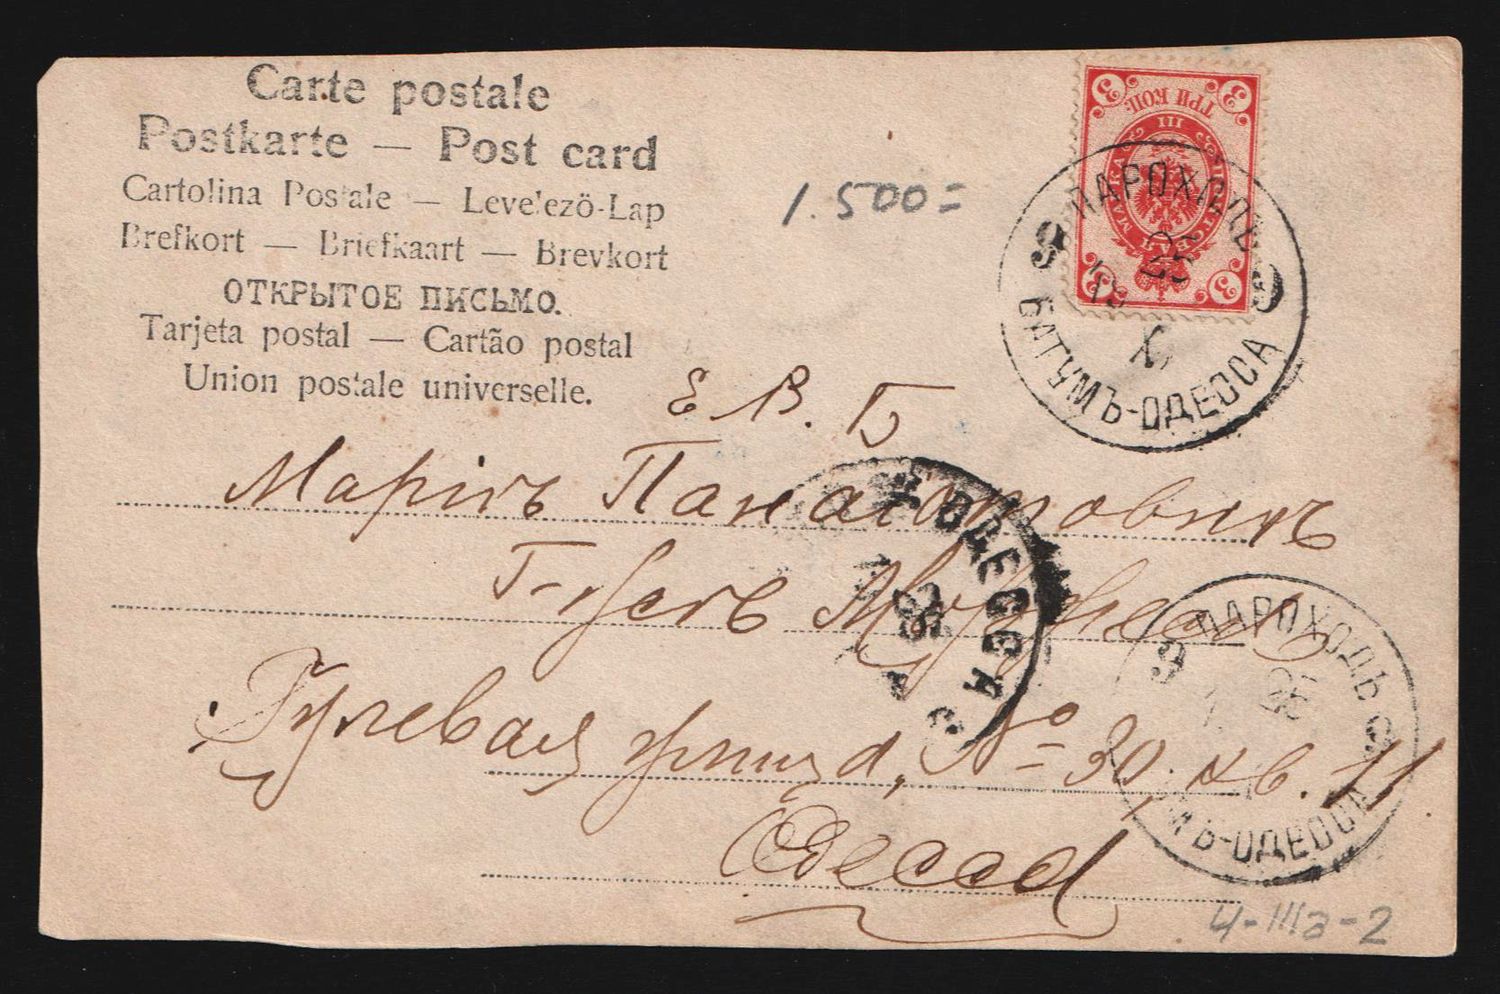 Carte postale
Postkarte — Post card
Cartolina Postale — Levelező-Lap
Brefkort — Briefkaart — Brevkort
ОТКРЫТОЕ ПИСЬМО.
Tarjeta postal — Cartão postal
Union postale universelle.
1.500=
ТРИ КОП.
3 3
III
ПОЧТОВАЯ МАРКА
3 3
ПАРОХОДЪ
9 9
25
X
БАТУМЪ-ОДЕССА
Е. В. Б
Маріи
ОДЕССА
26
улица, № 30, кв. 11
Одесса
ПАРОХОДЪ
9 9
МЪ-ОДЕССА
4-IIIa-2